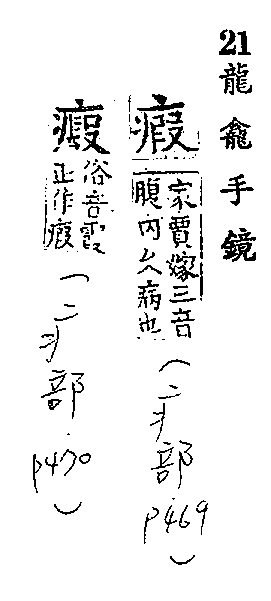 21龍龕手鏡
瘕
家賈嫁三音
腹內久病也
(二疒部 p469)
瘕
俗音霞
正作瘕
(二疒部 p470)